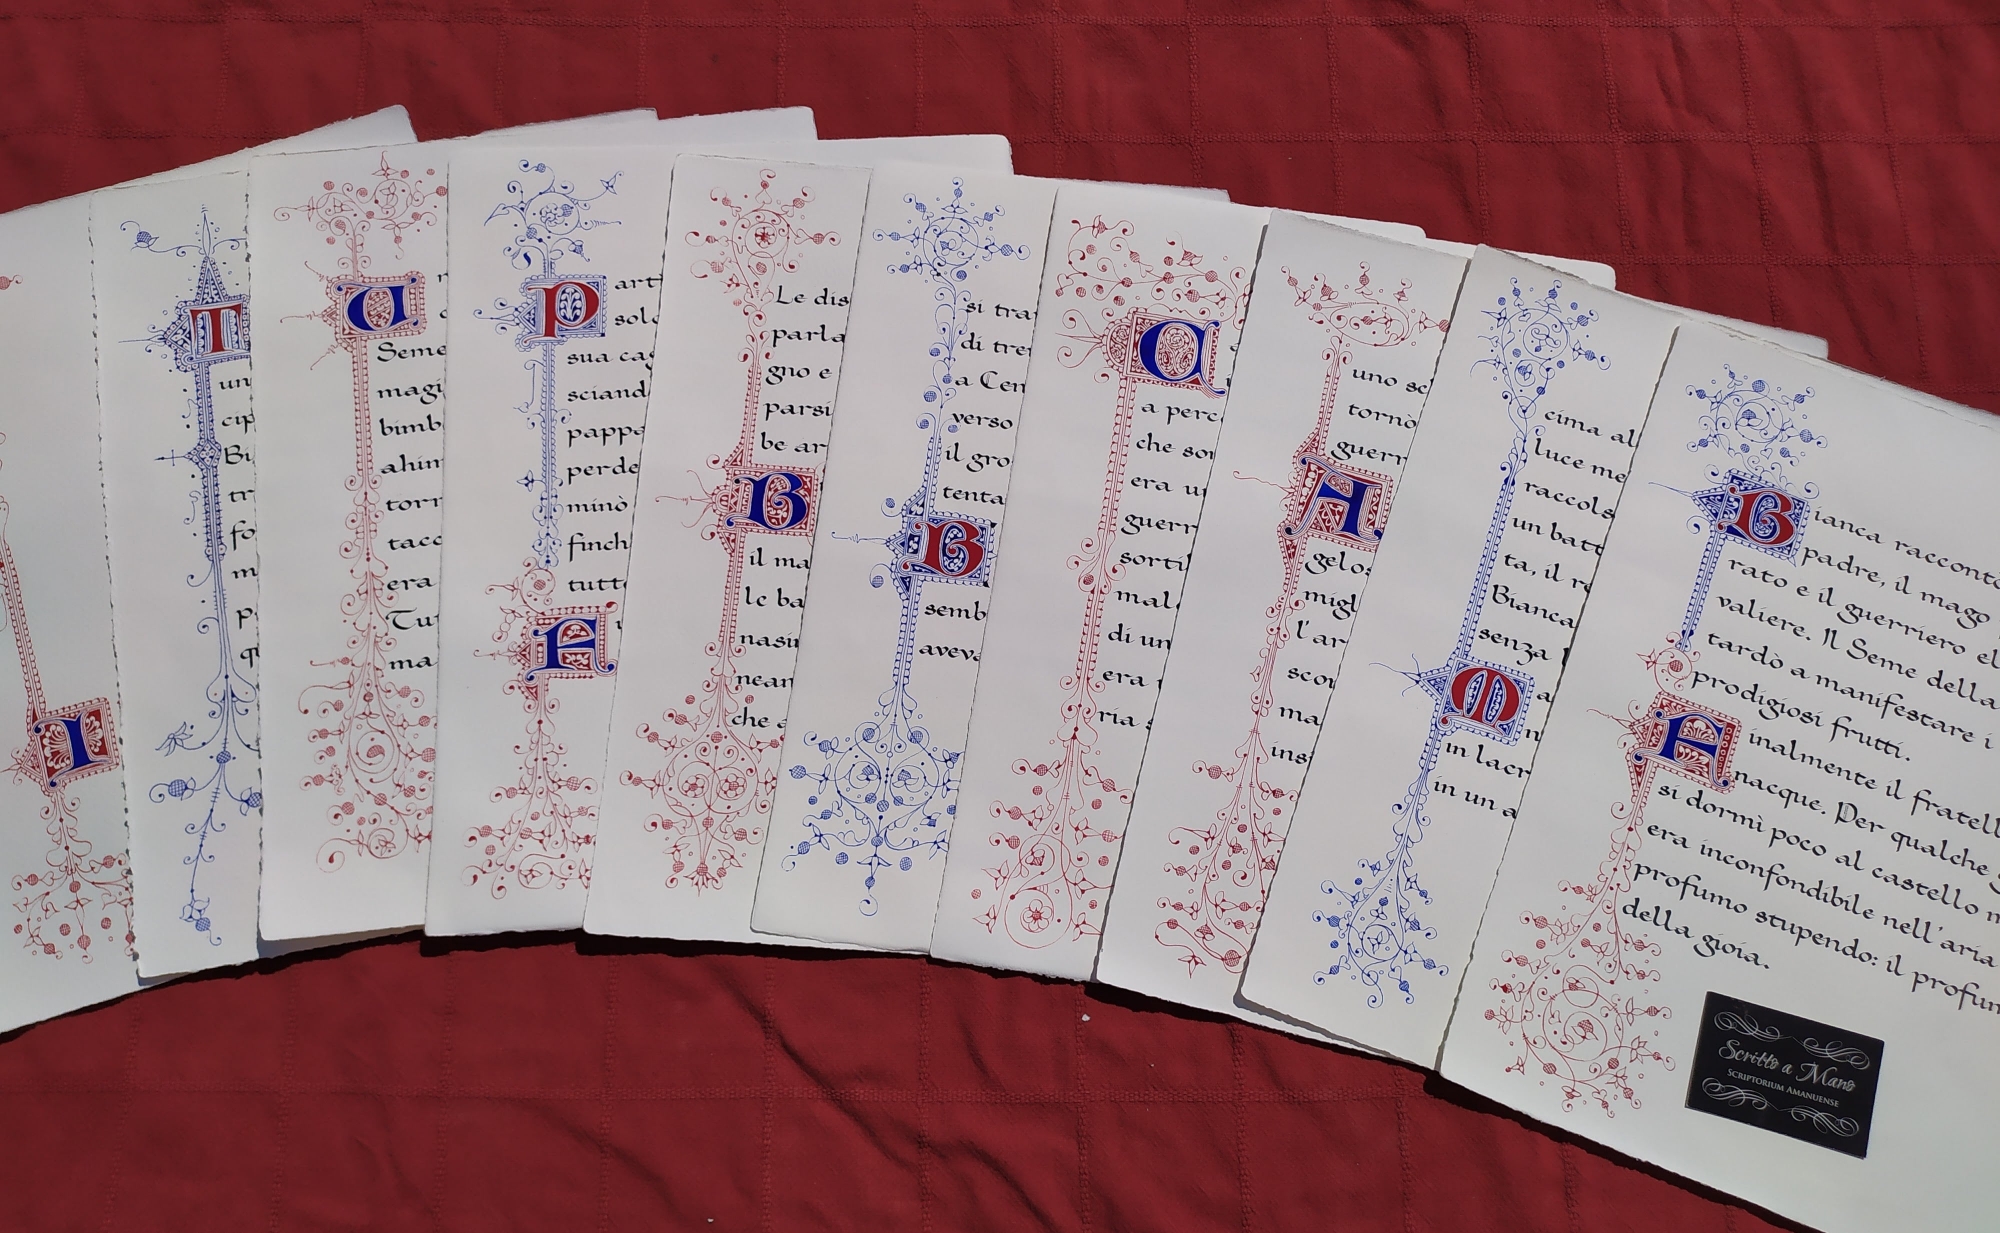 I
T
un
cip
Bi
tr
fo
m
p
q
U
Seme
magi
bimb
ahim
torn
tacc
era
Tut
ma
P
art
solo
sua cas
sciand
pappa
perde
minò
finch
tutto
F
Le dis
parla
gno e
parsi
be ar
B
il ma
le ba
nasu
nean
che a
si tra
di tre
a Cen
verso
il gro
tenta
B
semb
aveva
C
a perc
che son
era un
guerr
sorti
mal
di un
era
ria s
uno sc
tornò
guerr
A
gelos
migl
l'ar
scon
ma
ins
cima al
luce me
raccols
un batt
ta, il re
Bianca
senza
M a
n
in lacr
in un a
Bianca raccontò
padre, il mago
rato e il guerriero el
valiere. Il Seme della
tardò a manifestare i
prodigiosi frutti.
Finalmente il fratell
nacque. Per qualche g
si dormì poco al castello m
era inconfondibile nell'aria
profumo stupendo: il profum
della gioia.
Scritto a Mano
SCRIPTORIUM AMANUENSE